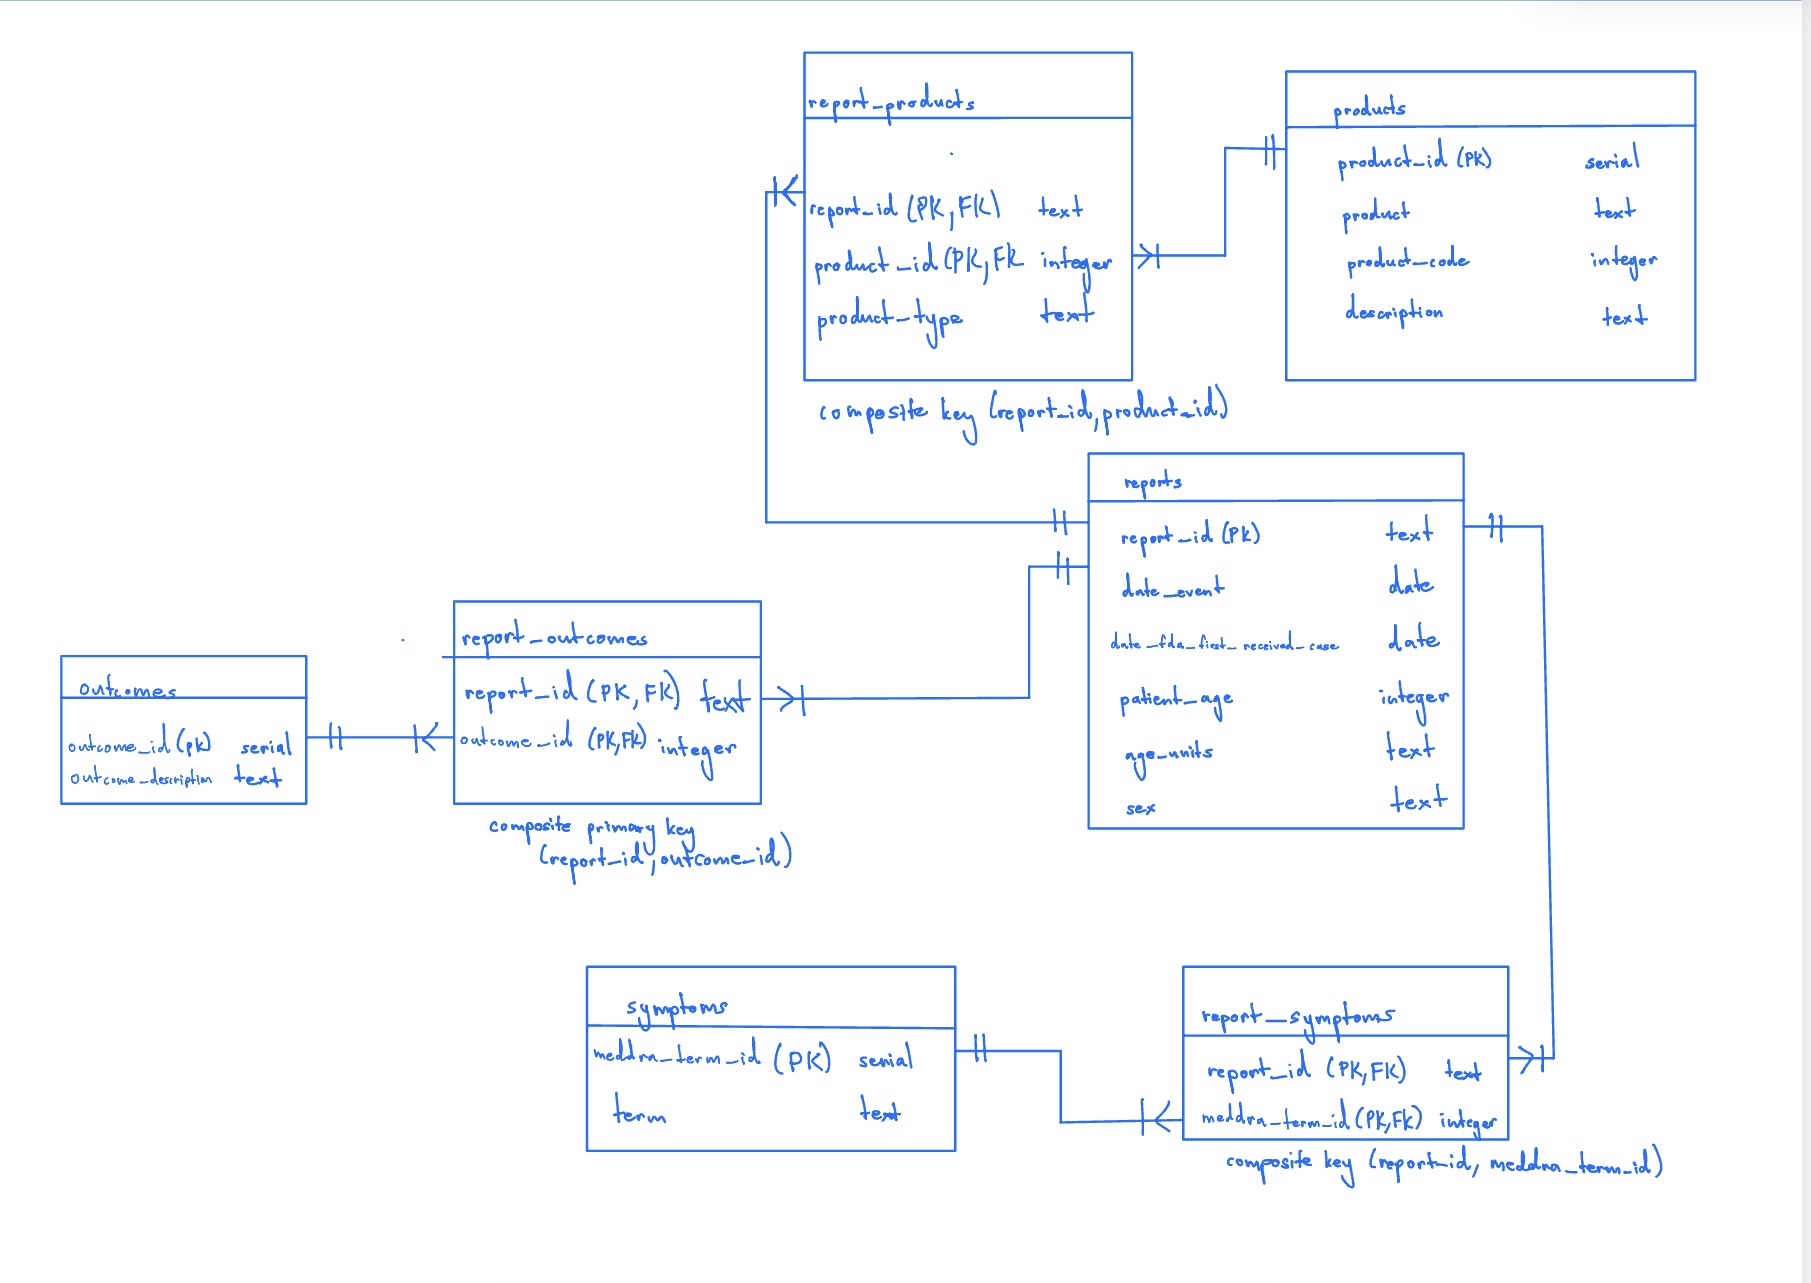 report_products
report_id (PK, FK) text
product_id (PK, FK integer
product_type text
composite key (report_id, product_id)
products
product_id (PK) serial
product text
product_code integer
description text
reports
report_id (PK) text
date_event date
date_fda_first_received_case date
patient_age integer
age_units text
sex text
report_outcomes
report_id (PK, FK) text
outcome_id (PK, FK) integer
composite primary key
(report_id, outcome_id)
outcomes
outcome_id (pk) serial
outcome_description text
symptoms
meddra_term_id (PK) serial
term text
report_symptoms
report_id (PK, FK) text
meddra_term_id (PK, FK) integer
composite key (report_id, meddra_term_id)